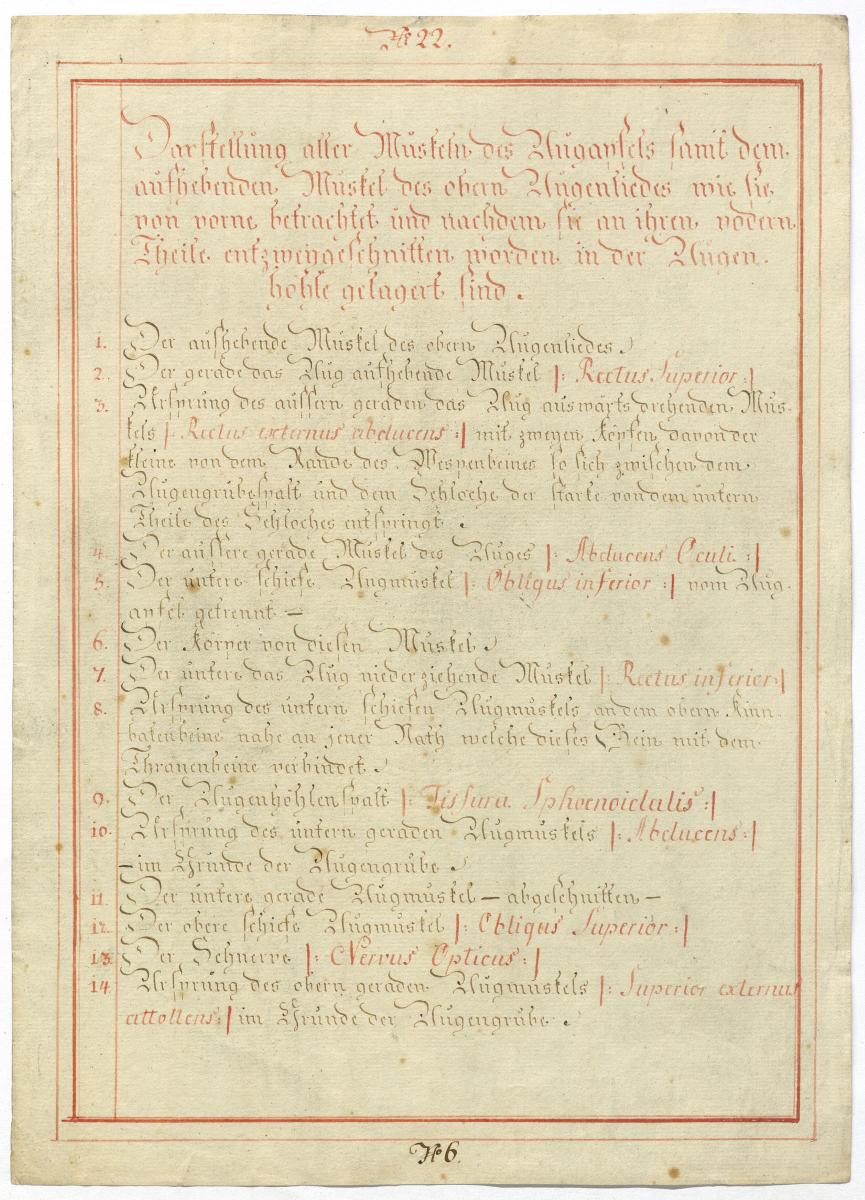 № 22.
Darstellung aller Muskeln des Augapfels samt dem
aufhebenden Muskel des obern Augenliedes wie sie
von vorne betrachtet und nachdem sie an ihren vodern
Theile entzweygeschnitten worden in der Augen-
höhle gelagert sind.
1. Der aufhebende Muskel des obern Augenliedes.
2. Der gerade das Aug aufhebende Muskel |: Rectus Superior :|
3. Ursprung des äussern geraden das Aug auswärts drehenden Mus-
kels |: Rectus externus abducens :| mit zweyen Köpfen davon der
kleine von dem Rande des Wespenbeines so sich zwischen dem
Augengrubespalt und dem Sehloche der starke von dem untern
Theile des Sehloches entspringt.
4. Der äussere gerade Muskel des Auges |: Abducens Oculi :|
5. Der untere schiefe Augmuskel |: Obliqus inferior :| vom Aug-
apfel getrennt —
6. Der Körper von diesen Muskel.
7. Der untere das Aug niederziehende Muskel |: Rectus inferior :|
8. Ursprung des untern schiefen Augmuskels an dem obern Kinn-
bakenbeine nahe an jener Nath welche dieses Bein mit dem
Thränenbeine verbindet.
9. Der Augenhöhlenspalt |: Fissura Sphoenoidalis :|
10. Ursprung des untern geraden Augmuskels |: Abducens :|
— im Grunde der Augengrube.
11. Der untere gerade Augmuskel — abgeschnitten —
12. Der obere schiefe Augmuskel |: Obliqus Superior :|
13. Der Sehnerve |: Nervus Opticus :|
14. Ursprung des obern geraden Augmuskels |: Superior externus
attollens :| im Grunde der Augengrube.
№ 6.